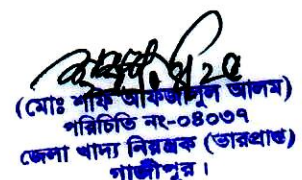 (মোঃ শফি আফজালুল আলম)
পরিচিতি নং-০৪০৩৭
জেলা খাদ্য নিয়ন্ত্রক (ভারপ্রাপ্ত)
গাজীপুর।